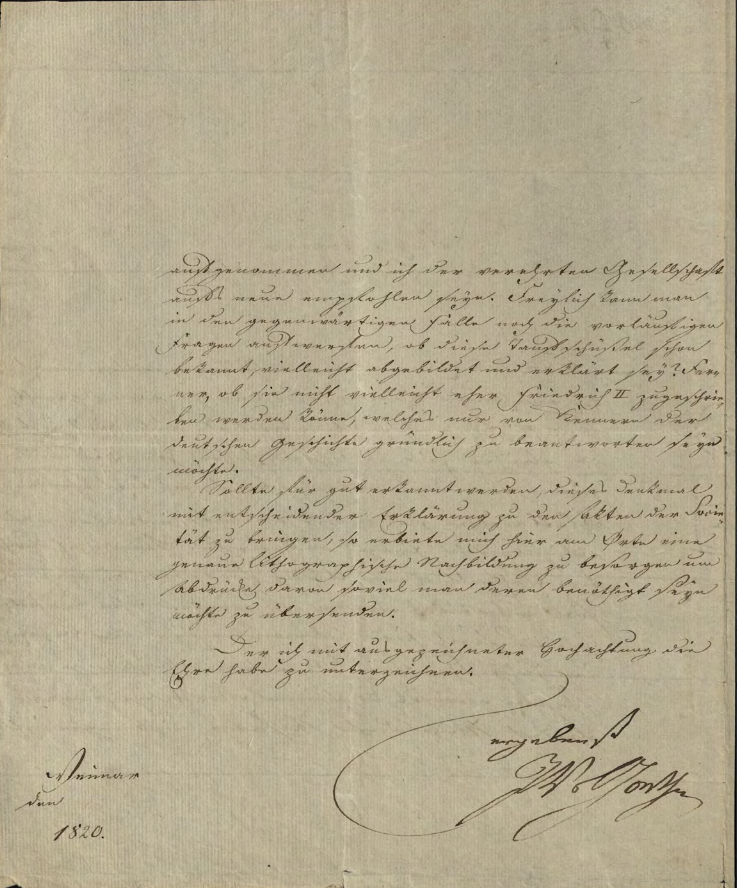 aufgenommen und ich der verehrten Gesellschaft
aufs neue empfohlen seyn. Freylich kann man
in den gegenwärtigen Falle noch die vorläufigen
Fragen aufwerfen, ob diese Taufschüßel schon
bekannt, vielleicht abgebildet und erklärt sey? Fer-
ner, ob sie nicht vielleicht eher Friedrich II zugeschrie-
ben werden könne, welches nur von Kennern der
deutschen Geschichte gründlich zu beantworten seyn
möchte.
Sollte für gut erkannt werden, dieses Denkmal
mit entscheidender Erklärung zu den Akten der Socie-
tät zu bringen, so erbiete mich hier am Orte eine
genaue lithographische Nachbildung zu besorgen um
Abdrücke davon soviel man deren benöthigt seyn
möchte zu übersenden.
Der ich mit ausgezeichneter Hochachtung die
Ehre habe zu unterzeichnen.
ergebenst
JWvGoethe
Weimar
den
1820.